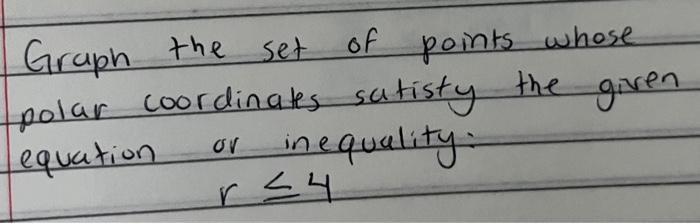 Graph the set of points whose
polar coordinates satisty the given
equation or inequality:
r ≤ 4